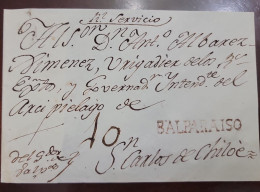 Rl. Servicio
Al Sor. Dn. Anto. Albarez
Ximenez, Brigadier de los Rs.
Extos, y Governador Intende. del
Archipielago de
10
BALPARAISO
Sn. Carlos de Chilòe
del Goor. de
Valpso